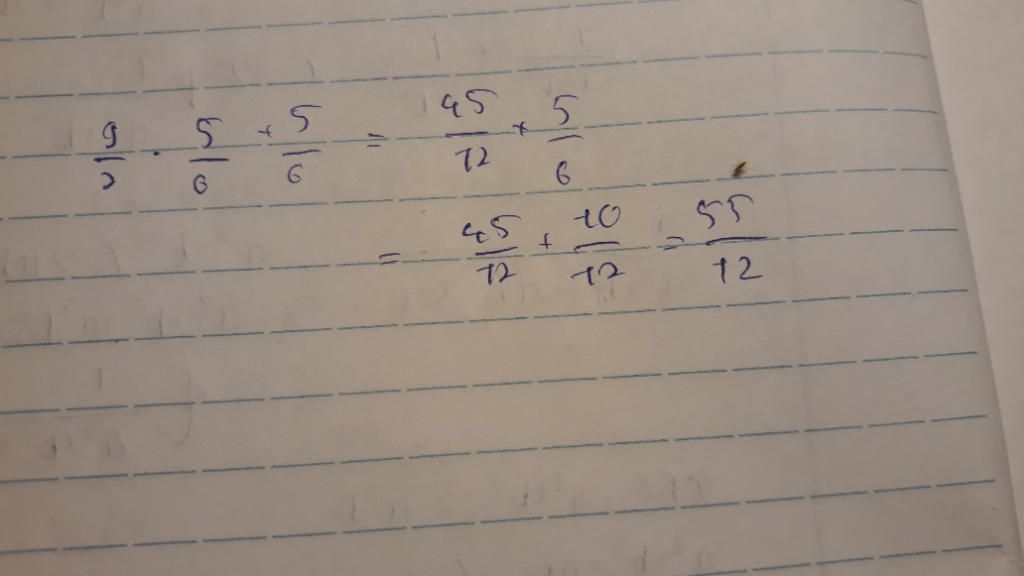 9/2 · 5/6 + 5/6 = 45/12 + 5/6
= 45/12 + 10/12 = 55/12